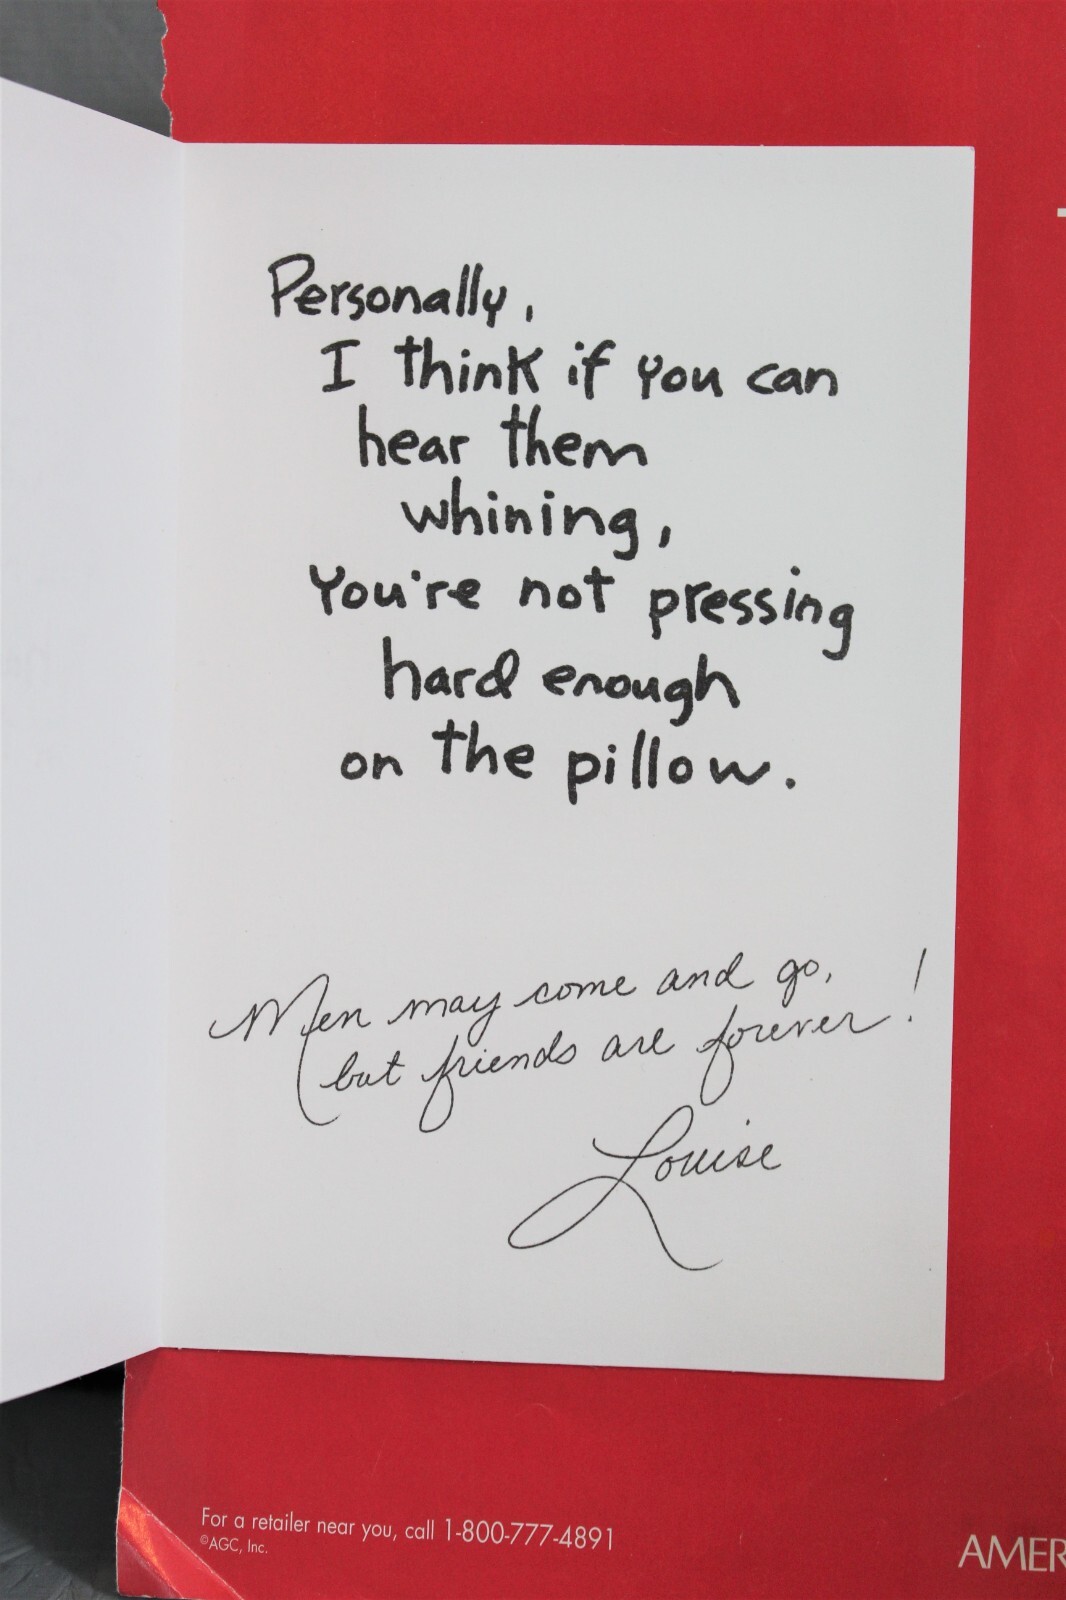 Personally,
I think if you can
hear them
whining,
You're not pressing
hard enough
on the pillow.
Men may come and go,
but friends are forever!
Louise
For a retailer near you, call 1-800-777-4891
©AGC, Inc.
AMER